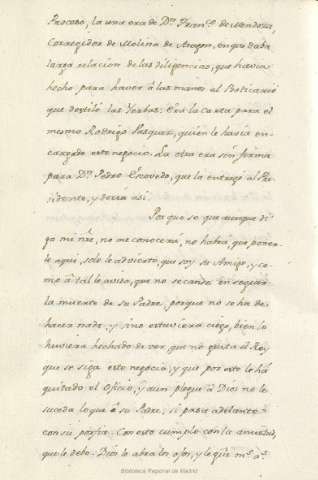 Procoso, la una era de Dn. Franco. de Mendoza,
Corregidor de Molina de Aragon, en que daba
larga relacion de las diligencias, que havia
hecho para haver á las manos al Boticario
que destiló las Yerbas: Era la Carta para el
mesmo Rodrigo Vasquez, quien le havia en-
cargado este negocio. La otra era sin firma
para Dn. Pedro Escovedo, que la entregó al Pre-
sidente, y decia asi.
Por que se que aunque di-
go mi nre, no me conocerá, no habrá que ponerle
aqui, solo le advierto, que soy su Amigo, y co-
mo á tal le aviso, que no se canse en seguir
la muerte de su Padre, porque no se ha de
hacer nada, y sino estuviera ciego, bien lo
huviera hechado de ver, que no gusta el Rey
que se siga este negocio, y que por esto le há
quitado el Oficio, y aun plegue á Dios no le
suceda lo que á su Padre, si pasa adelante
con su porfia. Con esto cumplo con la amistad,
que le debo. Dios le abra los ojos, y le que ms. as.
Biblioteca Regional de Madrid